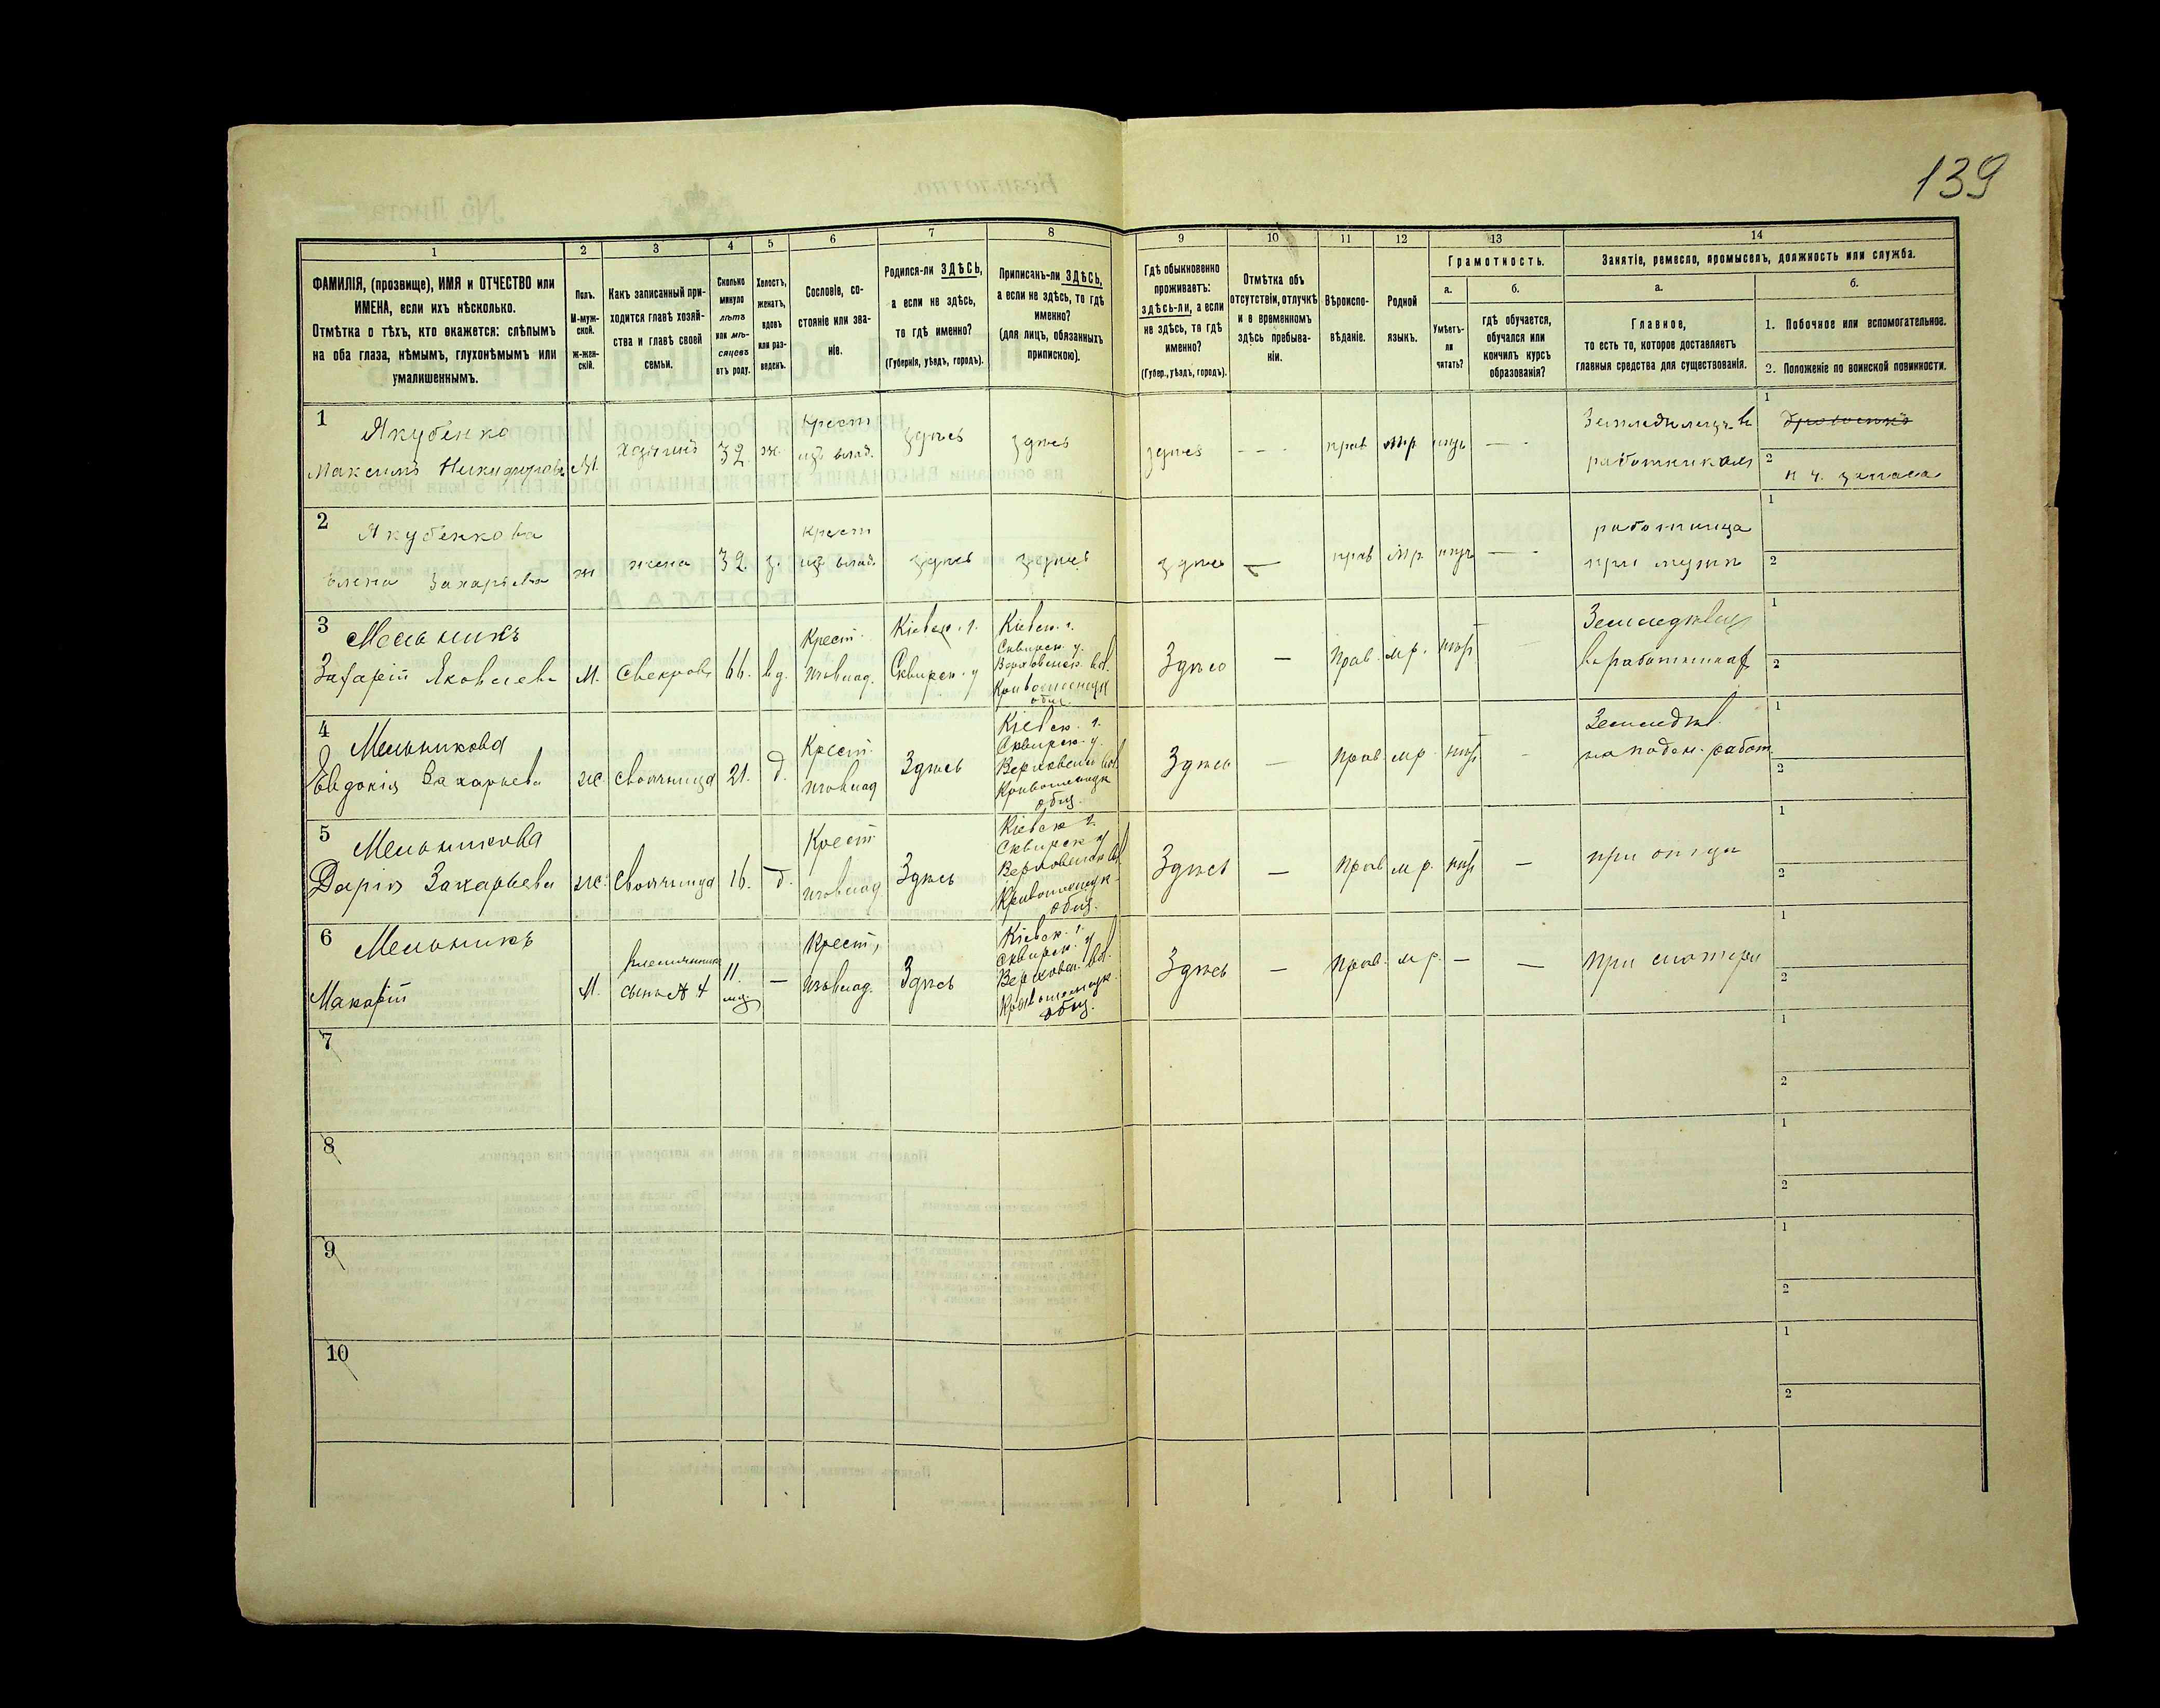 139
1
2
3
4
5
6
7
8
9
10
11
12
13
14
ФАМИЛІЯ, (прозвище), ИМЯ и ОТЧЕСТВО или
ИМЕНА, если ихъ нѣсколько.
Отмѣтка о тѣхъ, кто окажется: слѣпымъ
на оба глаза, нѣмымъ, глухонѣмымъ или
умалишеннымъ.
Полъ.
М-муж-
ской.
ж-жен-
скій.
Какъ записанный при-
ходится главѣ хозяй-
ства и главѣ своей
семьи.
Сколько
минуло
лѣтъ
или мѣ-
сяцевъ
отъ роду.
Холостъ,
женатъ,
вдовъ
или раз-
веденъ.
Сословіе, со-
стояніе или зва-
ніе.
Родился-ли ЗДѢСЬ,
а если не здѣсь,
то гдѣ именно?
(Губернія, уѣздъ, городъ).
Приписанъ-ли ЗДѢСЬ,
а если не здѣсь, то гдѣ
именно?
(для лицъ, обязанныхъ
припискою).
Гдѣ обыкновенно
проживаетъ:
здѣсь-ли, а если
не здѣсь, то гдѣ
именно?
(Губер., уѣздъ, городъ).
Отмѣтка объ
отсутствіи, отлучкѣ
и о временномъ
здѣсь пребыва-
ніи.
Вѣроиспо-
вѣданіе.
Родной
языкъ.
Грамотность.
а.
Умѣетъ-
ли
читать?
б.
гдѣ обучается,
обучался или
кончилъ курсъ
образованія?
Занятіе, ремесло, промыселъ, должность или служба.
а.
Главное,
то есть то, которое доставляетъ
главныя средства для существованія.
б.
1. Побочное или вспомогательное.
2. Положеніе по воинской повинности.
1
Якубенко
Максимъ Никифоровъ
М.
хозяинъ
32
ж.
Крест
изъ влад.
здѣсь
здѣсь
здѣсь
прав
мр
нѣтъ
работникам
1
2
2
Якубенкова
Елена Захарьева
ж
жена
32.
з.
крест
изъ влад.
здѣсь
здѣсь
здѣсь
прав
мр.
нѣтъ
работница
при мужѣ
1
2
3
Мельникъ
Захарій Яковлевъ
М.
свекровъ
66.
вд.
Крест.
изъ влад.
Кіевск. г.
Сквирск. у
Кіевск. г.
Сквирск. у.
Верховенск. вол.
общ.
Здѣсь
Прав.
мр.
нѣт
1
2
4
Мельникова
Евдокія Захарьева
ж.
своячница
21.
д.
Крест.
изъ влад
Здѣсь
Кіевск. г.
Сквирск. у.
Верховенск вол.
общ.
Здѣсь
Прав.
мр.
нѣт
Земледѣл.
на поден. работ.
1
2
5
Мельникова
Дарія Захарьева
ж.
своячница
16.
д.
Крест
изъ влад
Здѣсь
Кіевск г.
Сквирск у
Верховенск вол
общ.
Здѣсь
Прав
мр.
нѣт
при отцѣ
1
2
6
Мельникъ
Макарій
М.
племянникъ
сынъ № 4
11.
мѣс.
Крест,
изъ влад.
Здѣсь
Кіевск. г.
Сквирск. у
Верховен. вол.
общ.
Здѣсь
Прав.
мр.
при матери
1
2
7
1
2
8
1
2
9
1
2
10
1
2